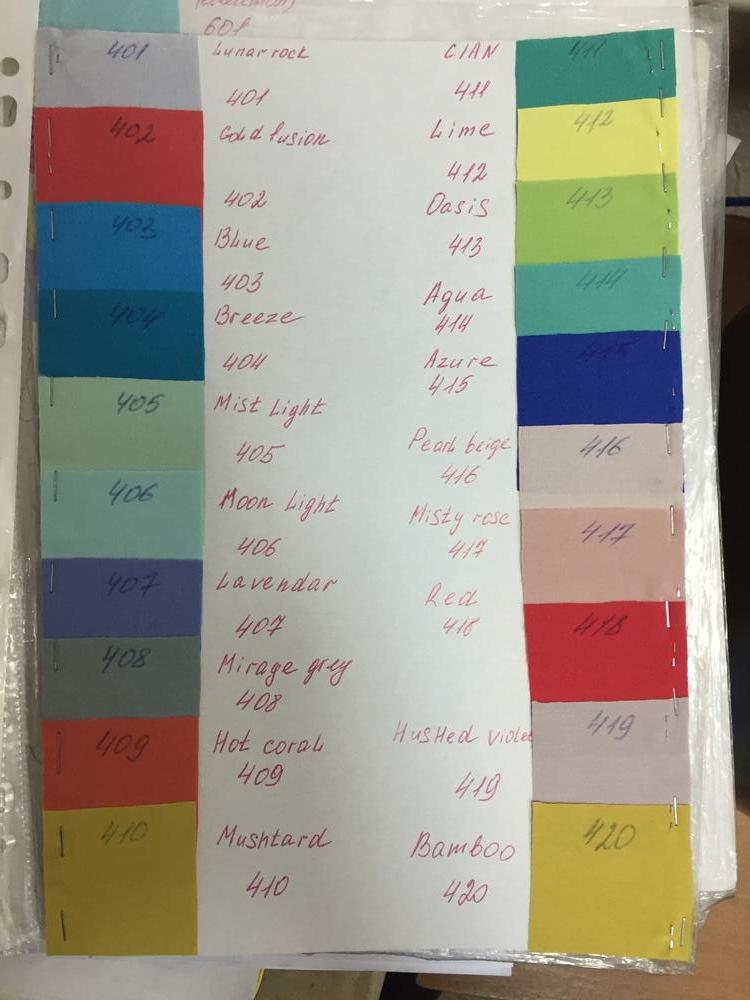 601
401
Lunar rock
401
402
Cold fusion
402
403
Blue
403
404
Breeze
404
405
Mist Light
405
406
Moon Light
406
407
Lavendar
407
408
Mirage grey
408
409
Hot coral
409
410
Mushtard
410
CIAN
411
411
Lime
412
412
Oasis
413
413
Aqua
414
414
Azure
415
415
Pearl beige
416
416
Misty rose
417
417
Red
418
418
HusHed violet
419
419
Bamboo
420
420